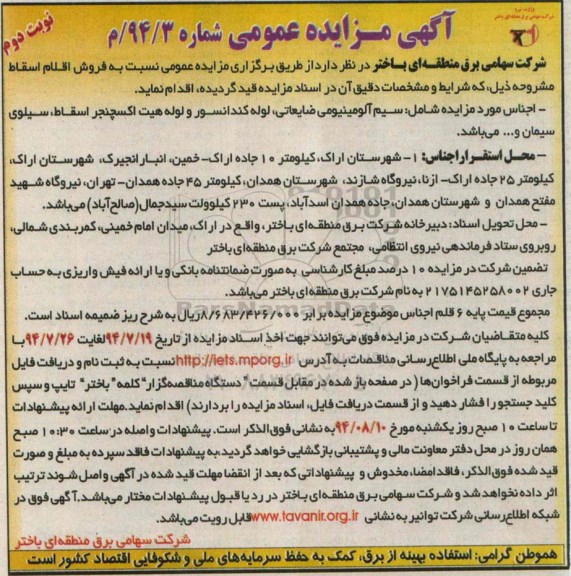 وزارت نیرو
شرکت سهامی برق منطقه‌ای باختر
نوبت دوم
آگهی مـزایده عمومی شماره ۹۴/۳/م
شرکت سهامی برق منطقه‌ای باختر در نظر دارد از طریق برگزاری مزایده عمومی نسبت به فروش اقلام اسقاط
مشروحه ذیل، که شرایط و مشخصات دقیق آن در اسناد مزایده قید گردیده، اقدام نماید.
– اجناس مورد مزایده شامل: سیم آلومینیومی ضایعاتی، لوله کندانسور و لوله هیت اکسچنجر اسقاط، سیلوی
سیمان و... می‌باشد.
– محل استقرار اجناس: ۱- شهرستان اراک، کیلومتر ۱۰ جاده اراک- خمین، انبار انجیرک، شهرستان اراک،
کیلومتر ۲۵ جاده اراک- ازنا، نیروگاه شازند، شهرستان همدان، کیلومتر ۴۵ جاده همدان- تهران، نیروگاه شهید
مفتح همدان و شهرستان همدان، جاده همدان اسدآباد، پست ۲۳۰ کیلوولت سیدجمال (صالح‌آباد) می‌باشد.
– محل تحویل اسناد: دبیرخانه شرکت برق منطقه‌ای باختر، واقع در اراک، میدان امام خمینی، کمربندی شمالی،
روبروی ستاد فرماندهی نیروی انتظامی، مجتمع شرکت برق منطقه‌ای باختر
تضمین شرکت در مزایده ۱۰ درصد مبلغ کارشناسی به صورت ضمانتنامه بانکی و یا ارائه فیش واریزی به حساب
جاری ۲۱۷۵۱۴۵۲۵۸۰۰۲ به نام شرکت برق منطقه‌ای باختر می‌باشد.
مجموع قیمت پایه ۶ قلم اجناس موضوع مزایده برابر ۸/۶۸۳/۴۲۶/۰۰۰ ریال به شرح ریز ضمیمه اسناد است.
کلیه متقاضیان شرکت در مزایده فوق می‌توانند جهت اخذ اسناد مزایده از تاریخ ۹۴/۷/۱۹ لغایت ۹۴/۷/۲۶ با
مراجعه به پایگاه ملی اطلاع‌رسانی مناقصات به آدرس http://iets.mporg.ir نسبت به ثبت نام و دریافت فایل
مربوطه از قسمت فراخوان‌ها (در صفحه باز شده در مقابل قسمت "دستگاه مناقصه‌گزار" کلمه "باختر" تایپ و سپس
کلید جستجو را فشار دهید و از قسمت دریافت فایل، اسناد مزایده را بردارند) اقدام نماید. مهلت ارائه پیشنهادات
تا ساعت ۱۰ صبح روز یکشنبه مورخ ۹۴/۰۸/۱۰ به نشانی فوق‌الذکر است. پیشنهادات واصله در ساعت ۱۰:۳۰ صبح
همان روز در محل دفتر معاونت مالی و پشتیبانی بازگشایی خواهد گردید، به پیشنهادات فاقد سپرده به مبلغ و صورت
قید شده فوق الذکر، فاقد امضا، مخدوش و پیشنهاداتی که بعد از انقضا مهلت قید شده در آگهی واصل شوند ترتیب
اثر داده نخواهد شد و شرکت سهامی برق منطقه‌ای باختر در رد یا قبول پیشنهادات مختار می‌باشد. آگهی فوق در
شبکه اطلاع‌رسانی شرکت توانیر به نشانی www.tavanir.org.ir قابل رویت می‌باشد.
شرکت سهامی برق منطقه‌ای باختر
هموطن گرامی: استفاده بهینه از برق، کمک به حفظ سرمایه‌های ملی و شکوفایی اقتصاد کشور است